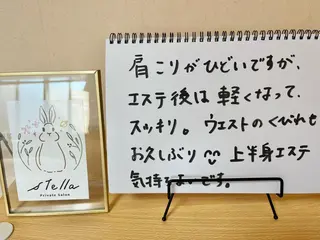 肩こりがひどいですが、
エステ後は軽くなって、
スッキリ。ウエストのくびれも
お久しぶり 上半身エステ
気持ちよいです。
stella
Private Salon